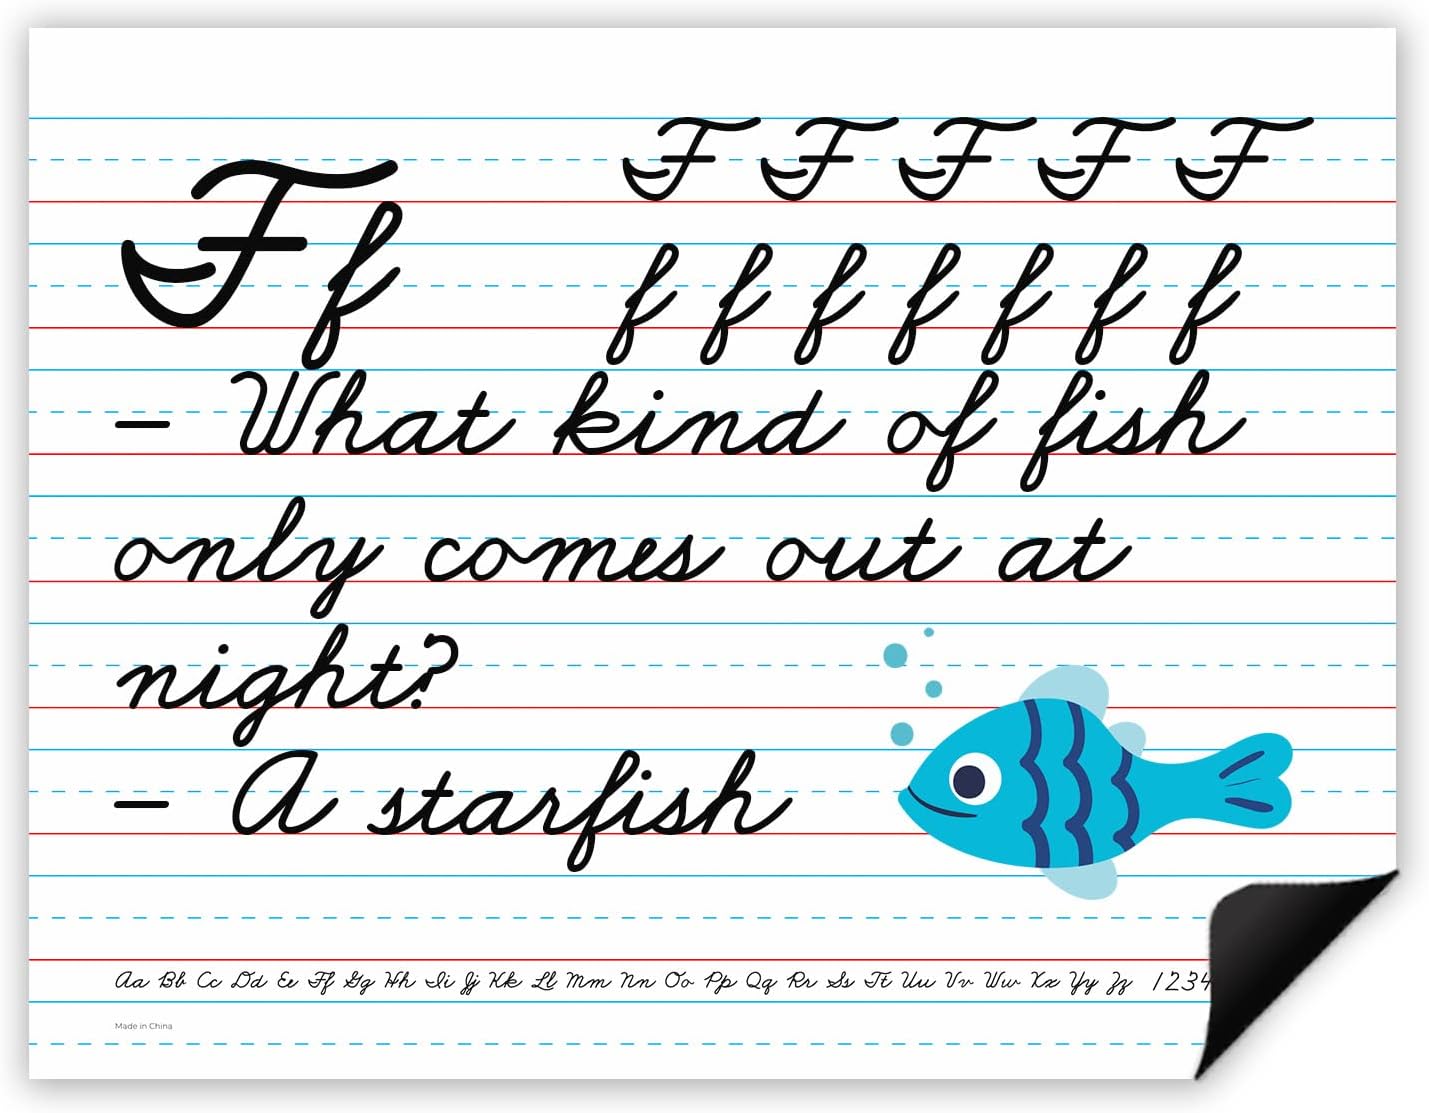 Ff
F F F F F
f f f f f f f
- What kind of fish
only comes out at
night?
- A starfish
Aa Bb Cc Dd Ee Ff Gg Hh Ii Jj Kk Ll Mm Nn Oo Pp Qq Rr Ss Tt Uu Vv Ww Xx Yy Zz 1234
Made in China